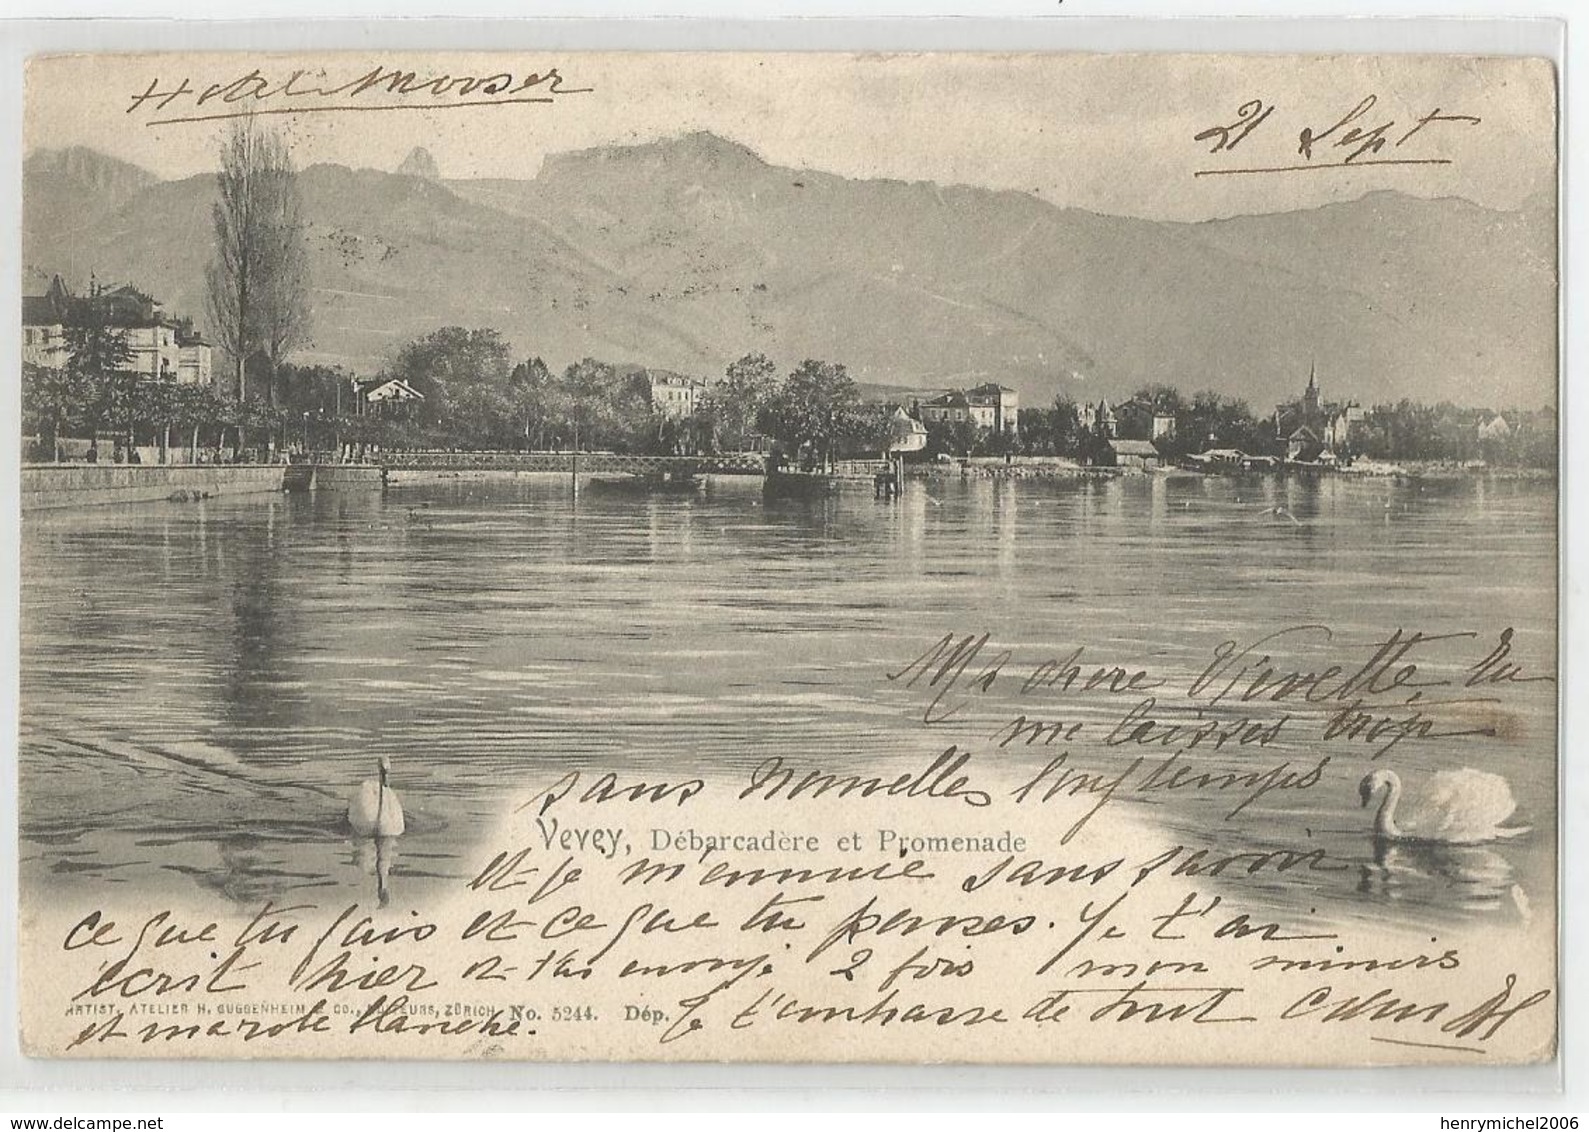 Hotel Mooser
21 Sept
Ma chere Vievette, tu
me laisses trop
sans nouvelles longtemps
Vevey, Débarcadère et Promenade
et je m'ennuie sans savoir
ce que tu fais et ce que tu penses. Je t'ai
écrit hier et t'ai envoyé 2 fois mon
ARTIST. ATELIER H. GUGGENHEIM & CO., EDITEURS, ZÜRICH No. 5244. Dép.
et ma robe blanche. Je t'embrasse de tout cœur
henrymichel2006